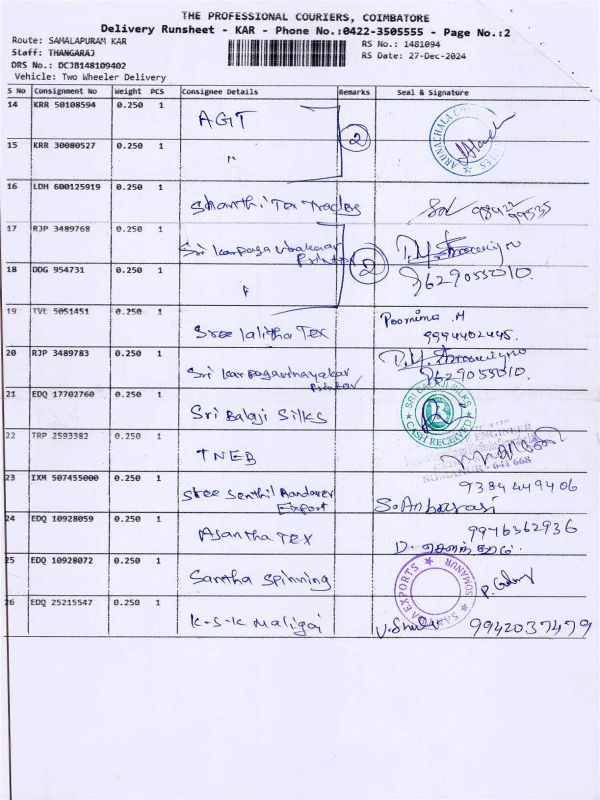 THE PROFESSIONAL COURIERS, COIMBATORE
Delivery Runsheet - KAR - Phone No.:0422-3505555 - Page No.:2
Route: SAMALAPURAM KAR
RS No.: 1481094
Staff: THANGARAJ
RS Date: 27-Dec-2024
DRS No.: DCJB148109402
Vehicle: Two Wheeler Delivery
S No Consignment No Weight PCS Consignee Details Remarks Seal & Signature
14 KRR 50108594 0.250 1 AGT
2
15 KRR 30080527 0.250 1 "
16 LDH 600125919 0.250 1 Shanthi Tex Trades
17 RJP 3489768 0.250 1 Sri karpaga vinakaar
Printer
2
18 DDG 954731 0.250 1 "
9629055010.
19 TVL 5051451 0.250 1 Sree lalitha Tex Poornima .M
9994402445.
20 RJP 3489783 0.250 1 Sri karpagavinayakar
Printer
9629055010.
21 EDQ 17702760 0.250 1 Sri Balaji Silks
SRI BALAJI SILKS
CASH RECEIVED
22 TRP 2593382 0.250 1 TNEB
ENGINEER
SOMANUR - 641 668
23 IXM 507455000 0.250 1 Sree Senthil Aandaver
Export
9384449406
S. Anbarasi
24 EDQ 10928059 0.250 1 Asantha TEX 9976362936
25 EDQ 10928072 0.250 1 Santha Spinning
EXPORTS SOMANUR
26 EDQ 25215547 0.250 1 K-S-K Maligai 9942037479